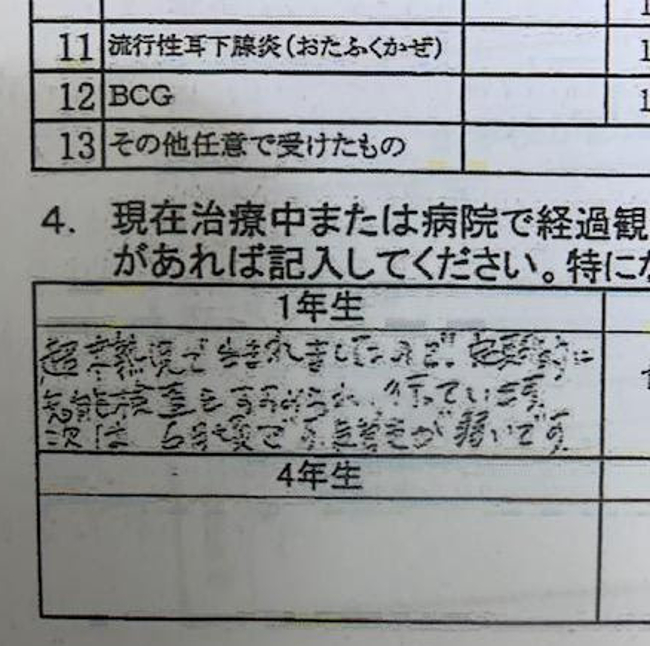 11 流行性耳下腺炎(おたふくかぜ)
12 BCG
13 その他任意で受けたもの
4. 現在治療中または病院で経過観
があれば記入してください。特に
1年生
超早熟児で生まれましたので、定期的に
発能検査をすすめられ、行っています。
次は 6月頃です。気管支が弱いです。
4年生